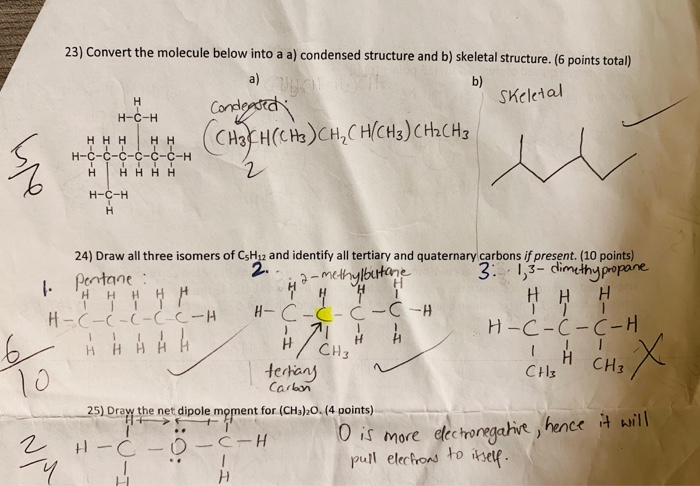 23) Convert the molecule below into a a) condensed structure and b) skeletal structure. (6 points total)
a)
b)
Condensed:
Skeletal
(CH3CH(CH3)CH2CH(CH3)CH2CH3
2
H
H-C-H
H H H H H
H-C-C-C-C-C-C-H
H H H H H
H-C-H
H
5/6
24) Draw all three isomers of C5H12 and identify all tertiary and quaternary carbons if present. (10 points)
1. Pentane :
H H H H H
H-C-C-C-C-C-H
H H H H H
2. 2-methylbutane
H H H H
H-C-C-C-C-H
H CH3 H H
tertiary
Carbon
3: 1,3-dimethypropane
H H H
H-C-C-C-H
CH3 H CH3
6/10
25) Draw the net dipole moment for (CH3)2O. (4 points)
H-C-O-C-H
H H
O is more electronegative, hence it will
pull electrons to itself.
2/4